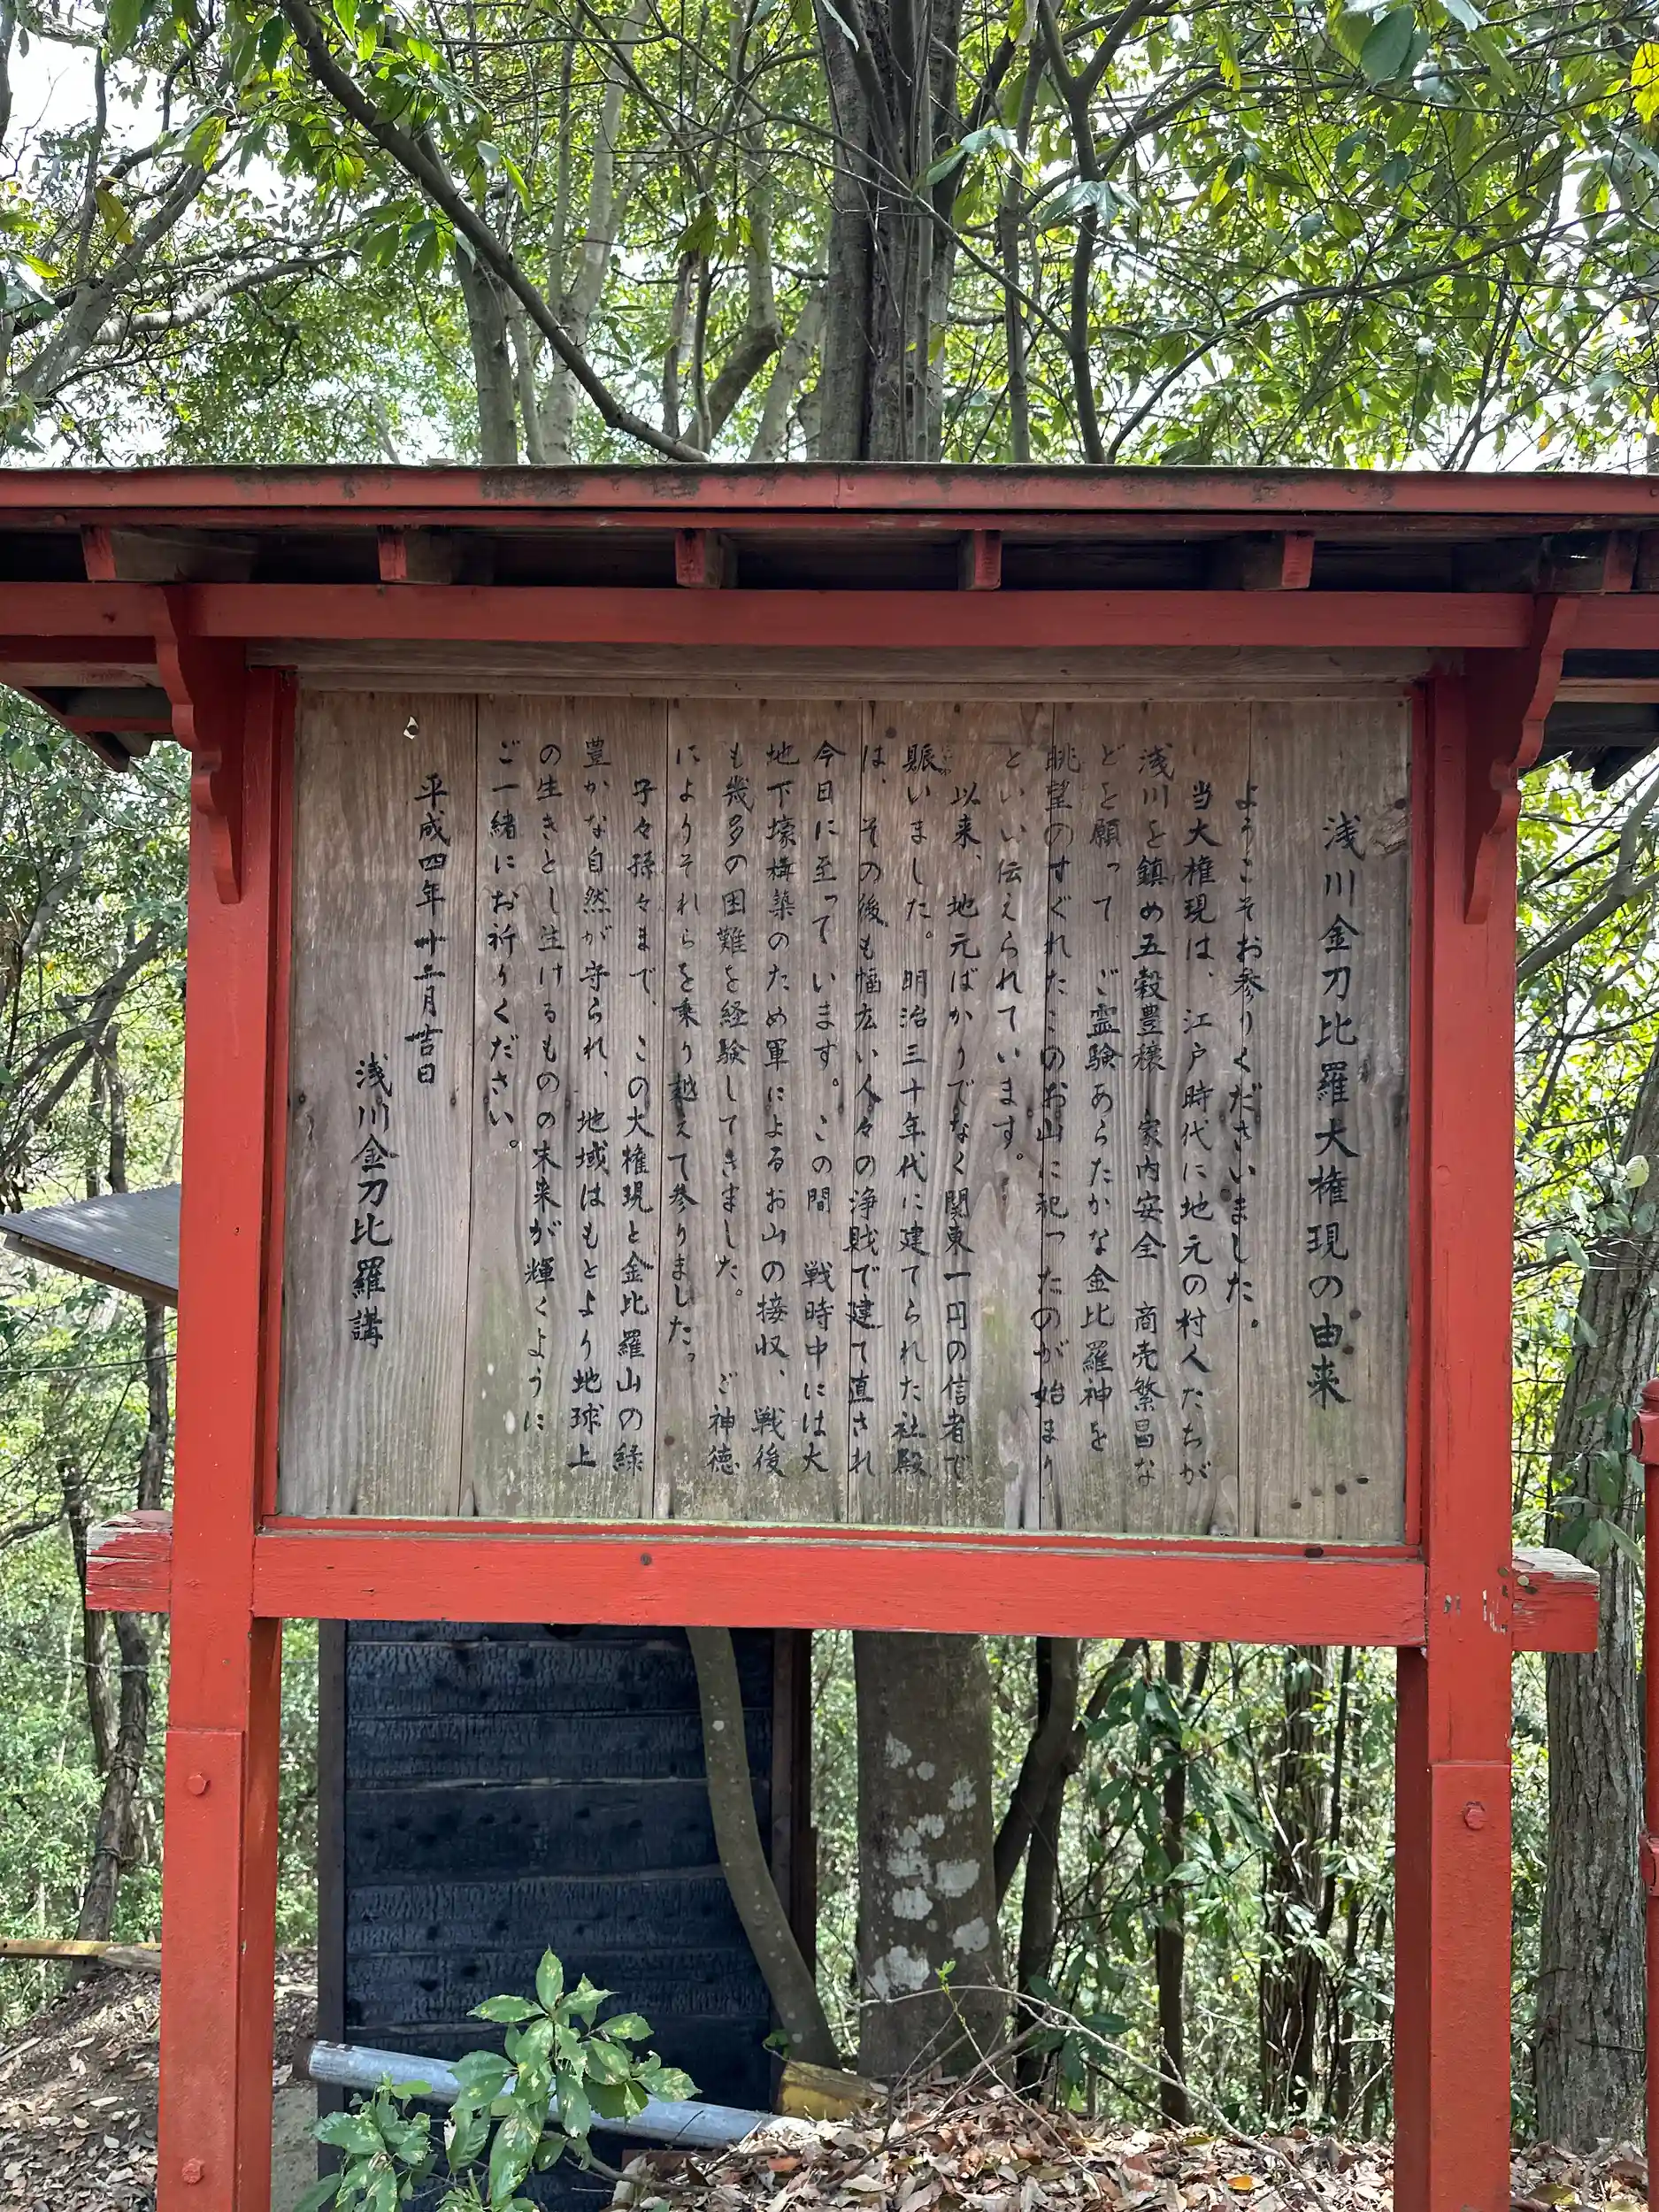 浅川金刀比羅大権現の由来
ようこそお参りくださいました。
当大権現は、江戸時代に地元の村人たちが
浅川を鎮め五穀豊穣 家内安全 商売繁昌な
どを願って、ご霊験あらたかな金比羅神を
眺望のすぐれたこのお山に祀ったのが始まり
といい伝えられています。
以来、地元ばかりでなく関東一円の信者で
賑いました。明治三十年代に建てられた社殿
は、その後も幅広い人々の浄財で建て直され
今日に至っています。この間 戦時中には大
地下壕構築のため軍によるお山の接収、戦後
も幾多の困難を経験してきました。ご神徳
によりそれらを乗り越えて参りました。
子々孫々まで、この大権現と金比羅山の緑
豊かな自然が守られ、地域はもとより地球上
の生きとし生けるものの末来が輝くように
ご一緒にお祈りください。
平成四年 月吉日
浅川金刀比羅講